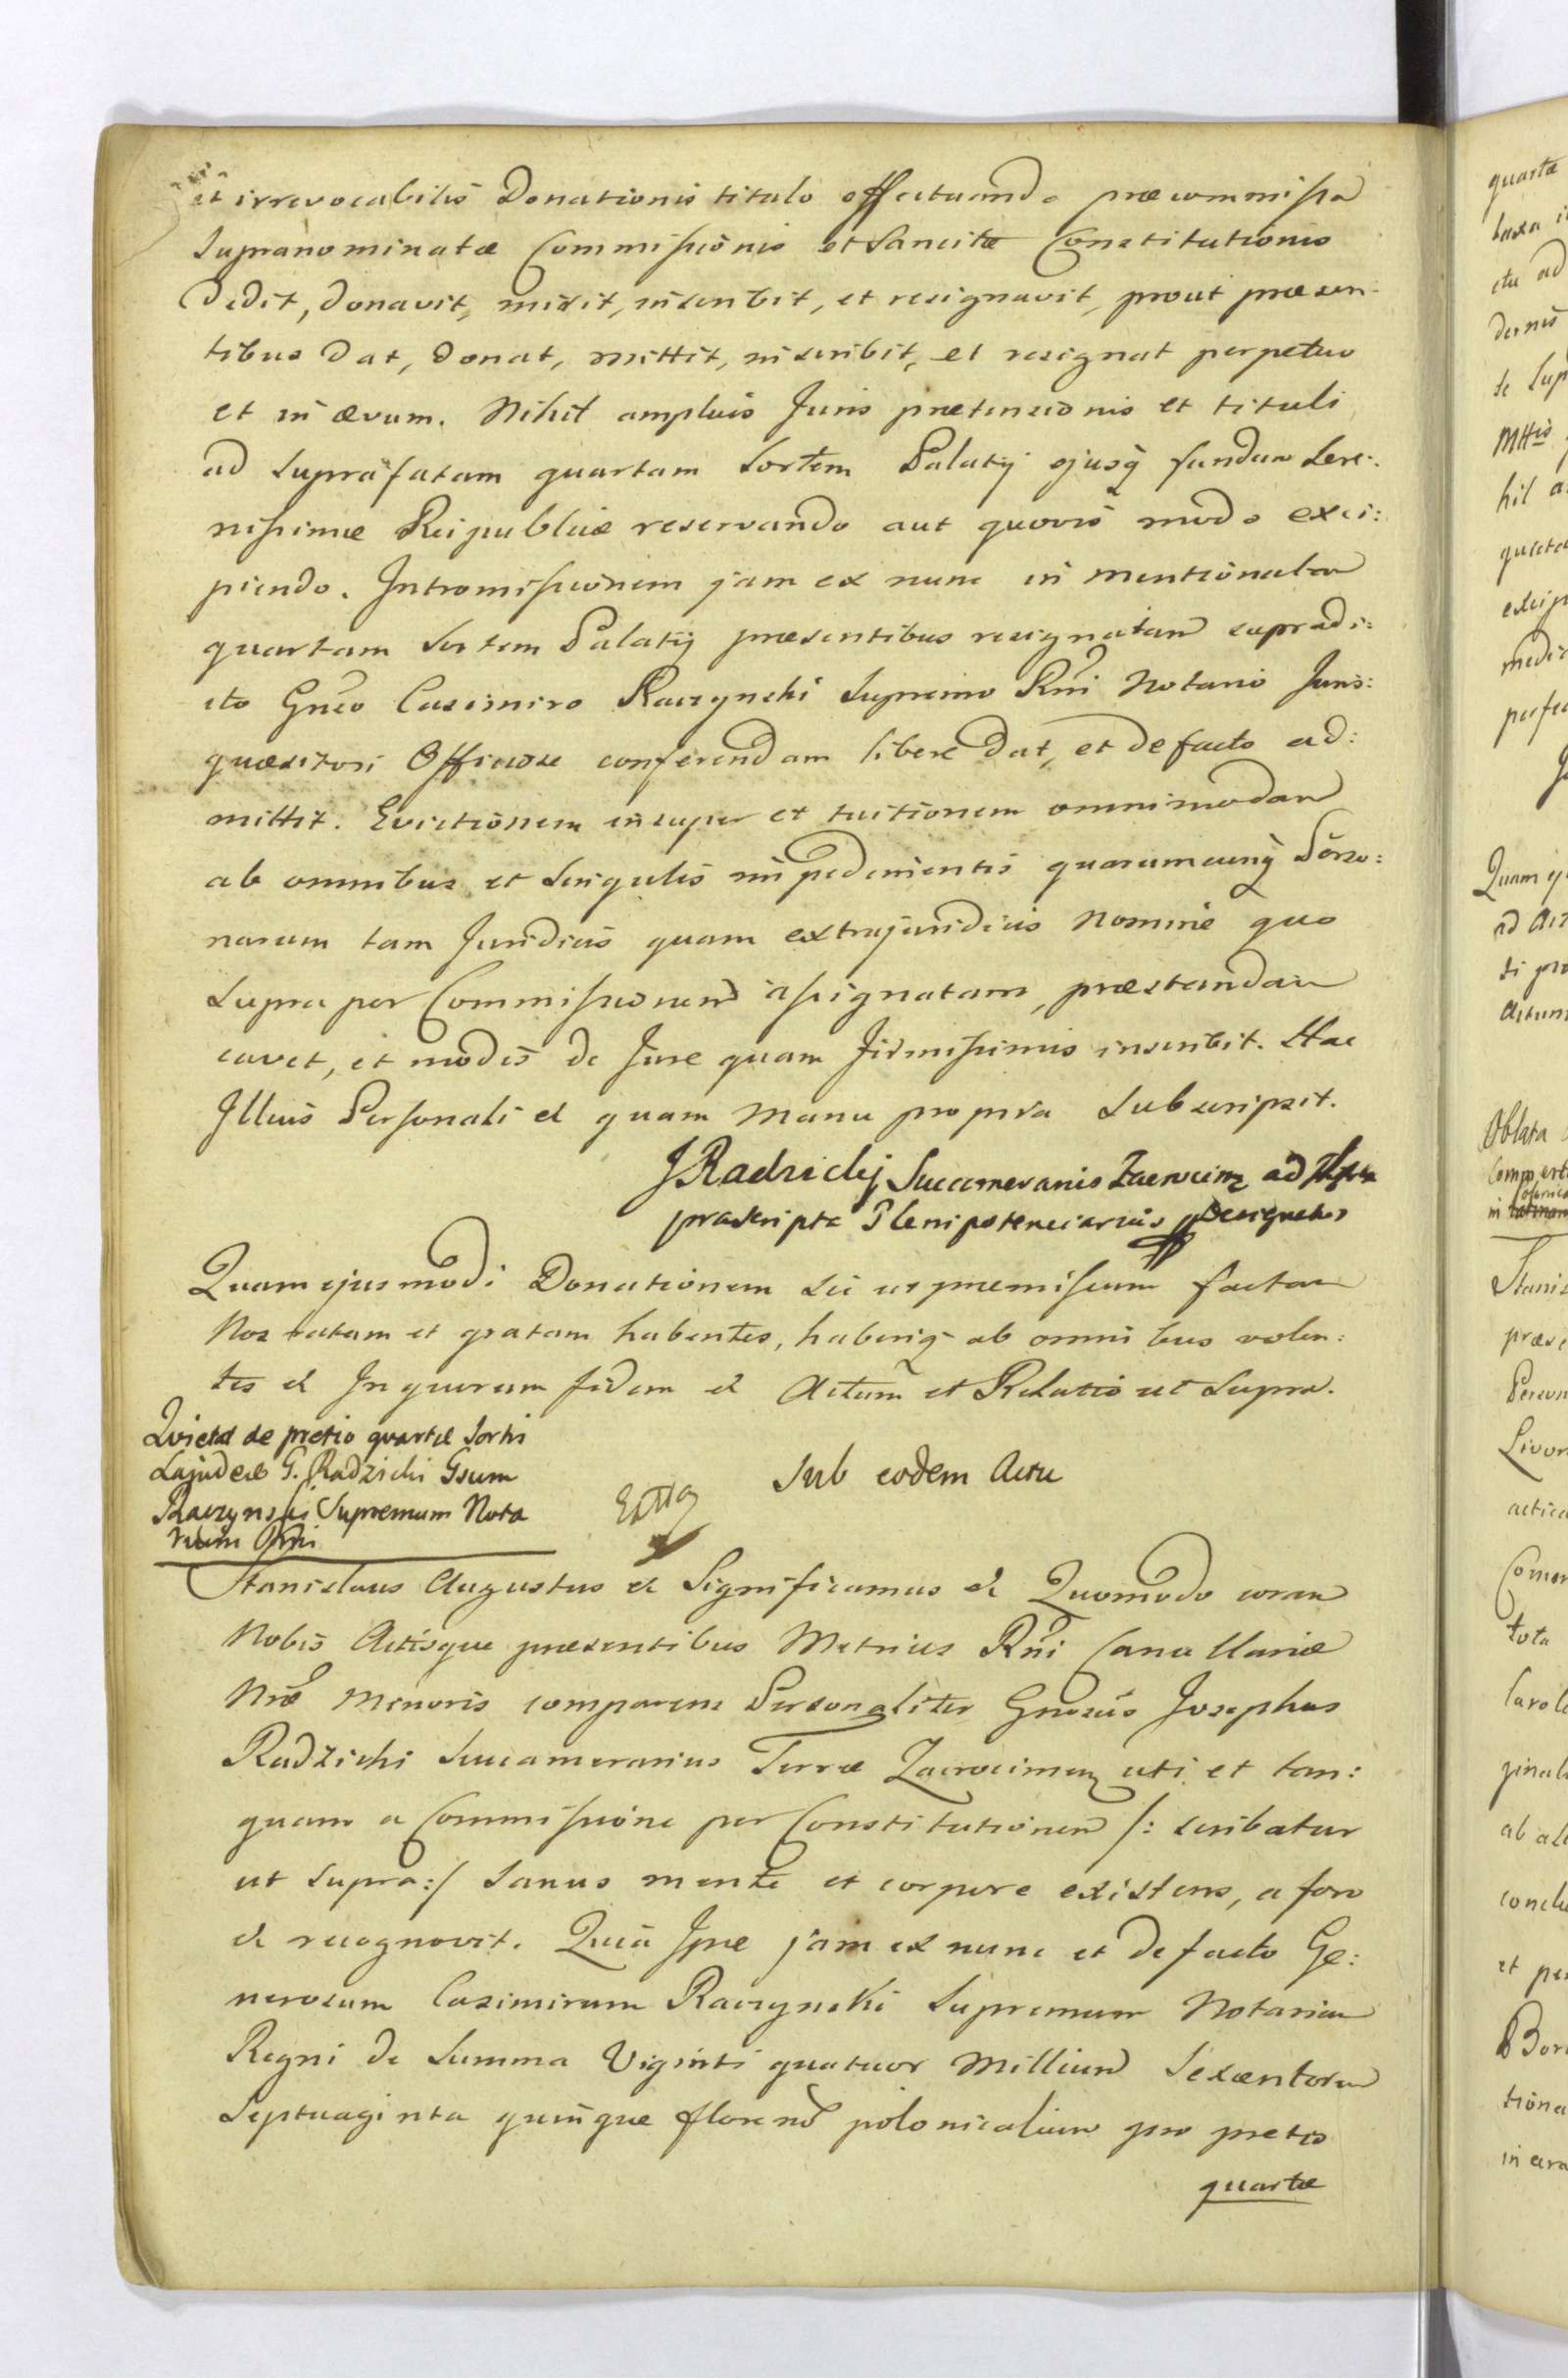 et irrevocabilis Donationis titulo effectuando præcommissa
Supranominatæ Commissionis et Sancitæ Constitutionis
Dedit, donavit, misit, inscribit, et resignavit, prout præsen-
tibus dat, donat, mittit, inscribit, et resignat perpetuo
et in ævum. Nihil amplius Juris prætensionis et tituli
ad supra fatam quartam Sortem Palatij ejusq fundum Sere:
nissimæ Reipublicæ reservando aut quovis modo exci:
piendo. Intromissionem jam ex nunc in mentionatam
quartam Sortem Palatij præsentibus resignatam supradi:
cto Gnso Casimiro Raczynski Supremo Rni Notario Juris:
quæsitori Officiose conferendam libere dat, et de facto ad:
mittit. Evictionem insuper et tuitionem omnimodam
ab omnibus et singulis impedimentis quarumcunq Perso:
narum tam Juridicis quam extrajuridicis Nomine quo
Supra per Commissionem assignatam, præstandam
cavet, et modis de Jure quam firmissimis inscribit. Hac
Illius Personali et quam Manu propria Subscripsit.
JRadzicky Succameranis Zacrocimz ad
præscripta Plenipotenciarius Designatus
Quam ejusmodi Donationem sic ut præmissum factam
Nos ratam et gratam habentes, haberiq ab omnibus volen:
tes et In quorum fidem et Actum et Relatio ut Supra.
Quietat de pretio quartæ Sortis
Lajudeab G. Radzicki Gsum
Raczynski Supremum Nota
rium Rni
Sub eodem Actu
Stanislaus Augustus et Significamus et Quomodo coram
Nobis Actisque præsentibus Metrices Rni Cancellariæ
Nræ Minoris comparens Personaliter Gnosus Josephus
Radzicki Succamerarius Terræ Zacrocimenz uti et tan:
quam a Commissione per Constitutionem /: scribatur
ut supra :/ Sanus mente et corpore existens, a foro
et recognovit. Quia Ipse jam ex nunc et de facto Ge:
nerosum Casimirum Raczynski Supremum Notarium
Regni de Summa Viginti quatuor Millium Sexcentorum
Septuaginta quinque floreno polonicalium pro pretio
quartæ